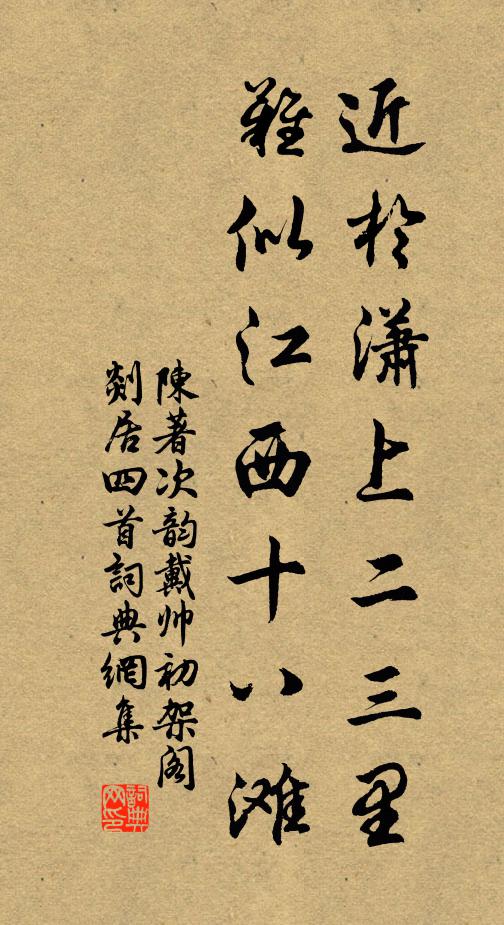 近於瀟上二三里
難似江西十八滩
陳著次韵戴帅初架阁
剡居四首詞典網集
詞典網印